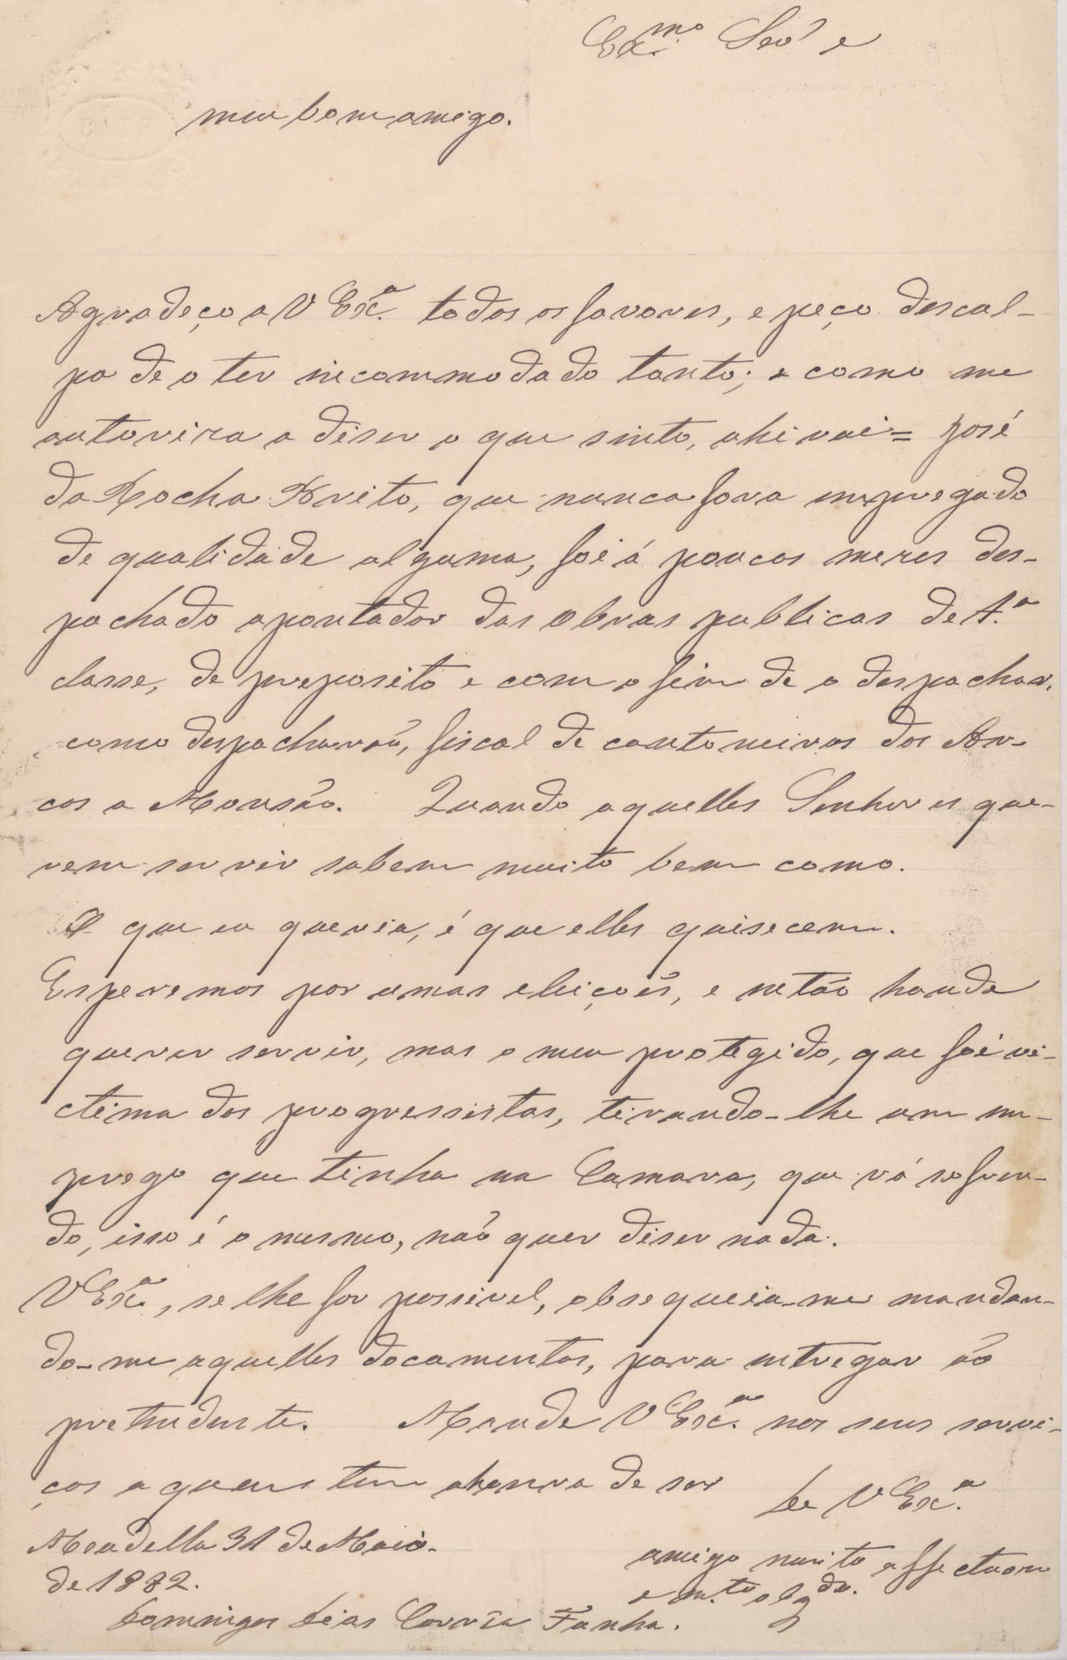 Ex.mo Snr e
meu bom amigo.
Agradeço a V Exc.ª todos os favores, e peço descul-
pa de o ter incommodado tanto; e como me
autoriza a diser o que sinto, ahi vai = José
da Rocha Brito, que nunca fora empregado
de qualidade alguma, foi á poucos meses des-
pachado apontador das obras publicas de 1.ª
classe, de preposito e com o fim de o despachar,
como despacharão, fiscal de cantoneiros dos Ar-
cos a Monsão. Quando aquelles Senhores que-
rem servir sabem muito bem como.
O que eu queria, é que elles quisecem.
Esperemos por umas eleições, e então hande
querer servir, mas o meu protegido, que foi vi-
ctima dos progressistas, tirando-lhe um em-
prego que tinha na Camara, que vá sofren-
do, isso é o mesmo, não quer diser nada.
V Exc.ª, se lhe for possivel, obsequeia-me mandan-
do-me aquelles documentos, para entregar ao
pretendente. Mande V Exc.ª nos seus servi-
ços a quem tem a honra de ser
De V Exc.ª
Moadella 31 de Maio
de 1882.
amigo muito affectuoso
e m.to obg.do
Domingos Dias Corrêa